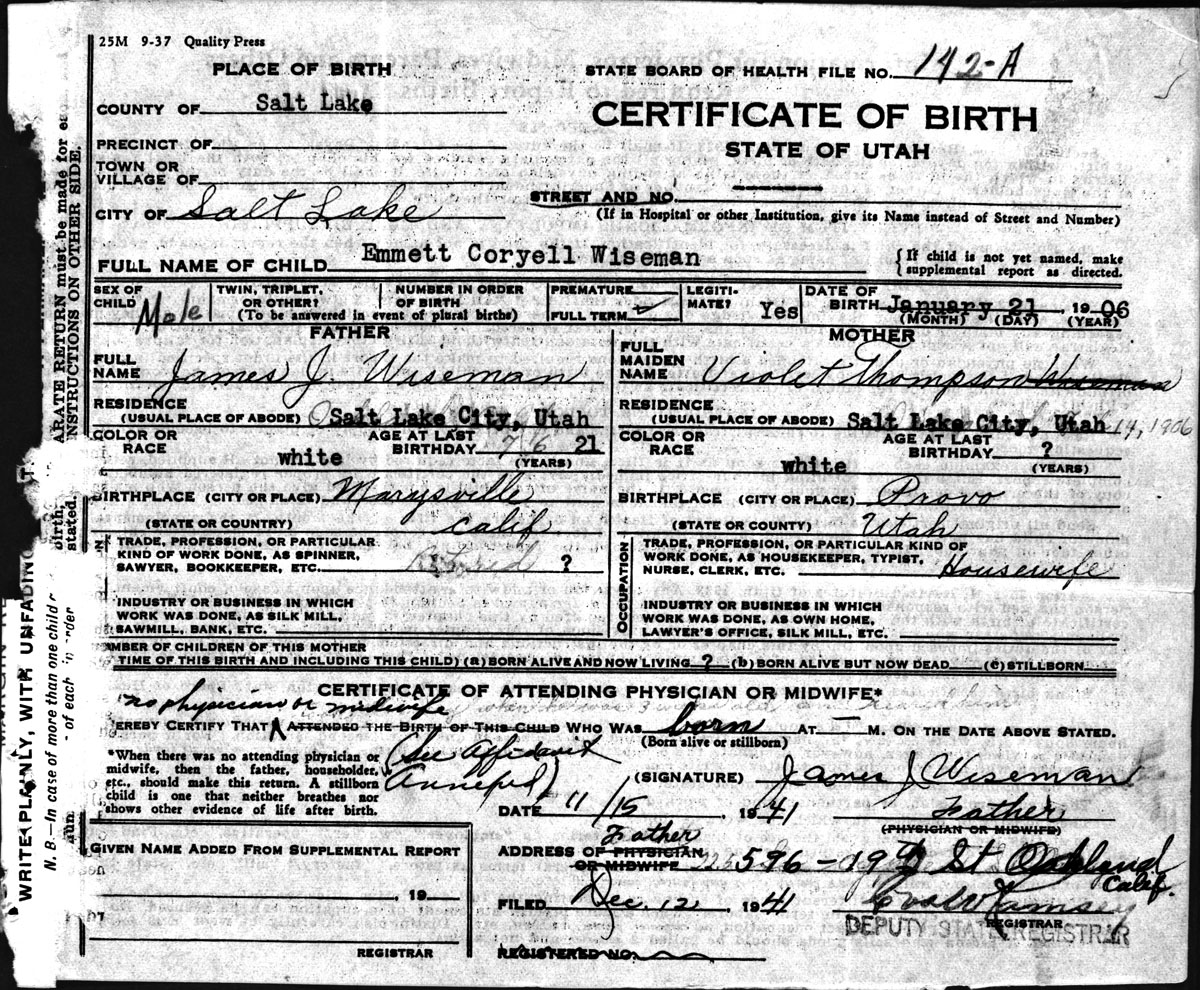 25M 9-37 Quality Press
PLACE OF BIRTH
STATE BOARD OF HEALTH FILE NO. 142-A
COUNTY OF Salt Lake
CERTIFICATE OF BIRTH
STATE OF UTAH
PRECINCT OF
TOWN OR
VILLAGE OF
STREET AND NO.
CITY OF Salt Lake
(If in Hospital or other Institution, give its Name instead of Street and Number)
FULL NAME OF CHILD Emmett Coryell Wiseman
{If child is not yet named, make
supplemental report as directed.
SEX OF
CHILD Male
TWIN, TRIPLET,
OR OTHER?
NUMBER IN ORDER
OF BIRTH
(To be answered in event of plural births)
PREMATURE
FULL TERM ✓
LEGITI-
MATE? Yes
DATE OF
BIRTH January 21 1906
(MONTH) (DAY) (YEAR)
FATHER
FULL
NAME James J. Wiseman
RESIDENCE
(USUAL PLACE OF ABODE) Salt Lake City, Utah
COLOR OR
RACE white
AGE AT LAST
BIRTHDAY 76 21
(YEARS)
BIRTHPLACE (CITY OR PLACE) Marysville
(STATE OR COUNTRY) Calif
TRADE, PROFESSION, OR PARTICULAR
KIND OF WORK DONE, AS SPINNER,
SAWYER, BOOKKEEPER, ETC. Retired ?
INDUSTRY OR BUSINESS IN WHICH
WORK WAS DONE, AS SILK MILL,
SAWMILL, BANK, ETC.
MOTHER
FULL
MAIDEN
NAME Violet Thompson Wiseman
RESIDENCE
(USUAL PLACE OF ABODE) Salt Lake City, Utah 14, 1906
COLOR OR
RACE white
AGE AT LAST
BIRTHDAY ?
(YEARS)
BIRTHPLACE (CITY OR PLACE) Provo
(STATE OR COUNTY) Utah
OCCUPATION
TRADE, PROFESSION, OR PARTICULAR KIND OF
WORK DONE, AS HOUSEKEEPER, TYPIST,
NURSE, CLERK, ETC. Housewife
INDUSTRY OR BUSINESS IN WHICH
WORK WAS DONE, AS OWN HOME,
LAWYER'S OFFICE, SILK MILL, ETC.
MBER OF CHILDREN OF THIS MOTHER
TIME OF THIS BIRTH AND INCLUDING THIS CHILD) (a) BORN ALIVE AND NOW LIVING ? (b) BORN ALIVE BUT NOW DEAD (c) STILLBORN
CERTIFICATE OF ATTENDING PHYSICIAN OR MIDWIFE*
no physician or midwife
EREBY CERTIFY THAT ATTENDED THE BIRTH OF THIS CHILD WHO WAS born AT — M. ON THE DATE ABOVE STATED.
(Born alive or stillborn)
*When there was no attending physician or
midwife, then the father, householder,
etc., should make this return. A stillborn
child is one that neither breathes nor
shows other evidence of life after birth.
(See Affidavit
Annexed)
(SIGNATURE) James J Wiseman
DATE 11/15, 1941
Father
(PHYSICIAN OR MIDWIFE)
Father
ADDRESS OF PHYSICIAN
OR MIDWIFE 596-19th St Oakland
Calif.
FILED Dec. 12 1941
Ramsey
REGISTRAR
DEPUTY STATE REGISTRAR
REGISTERED NO.
GIVEN NAME ADDED FROM SUPPLEMENTAL REPORT
, 19
REGISTRAR
ARATE RETURN must be made for ea
INSTRUCTIONS ON OTHER SIDE.
birth
stated.
WRITE PLAINLY, WITH UNFADING
N. B.—In case of more than one child
of each in order